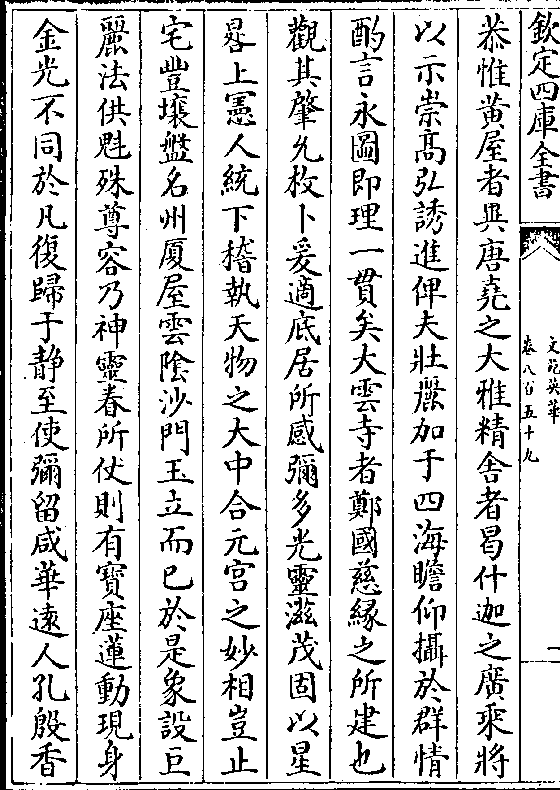 欽定四庫全書
文苑英華
卷八百五十九
恭惟黄屋者與唐堯之大雅精舎者曷什迦之廣乘將
以示崇髙弘誘進俾夫壯麗加于四海瞻仰攝於群情
酌言永圖即理一貫矣大雲寺者鄭國慈緣之所建也
觀其肇允枚卜爰適底居所感彌多光靈滋茂固以星
晷上憲人統下稽執天物之大中合元宫之妙相豈止
宅豐壤盤名州厦屋雲陰沙門玉立而已於是象設巨
麗法供魁殊尊容乃神靈眷所仗則有寳座蓮動現身
金光不同於凡復歸于静至使彌留咸華遠人孔殷香